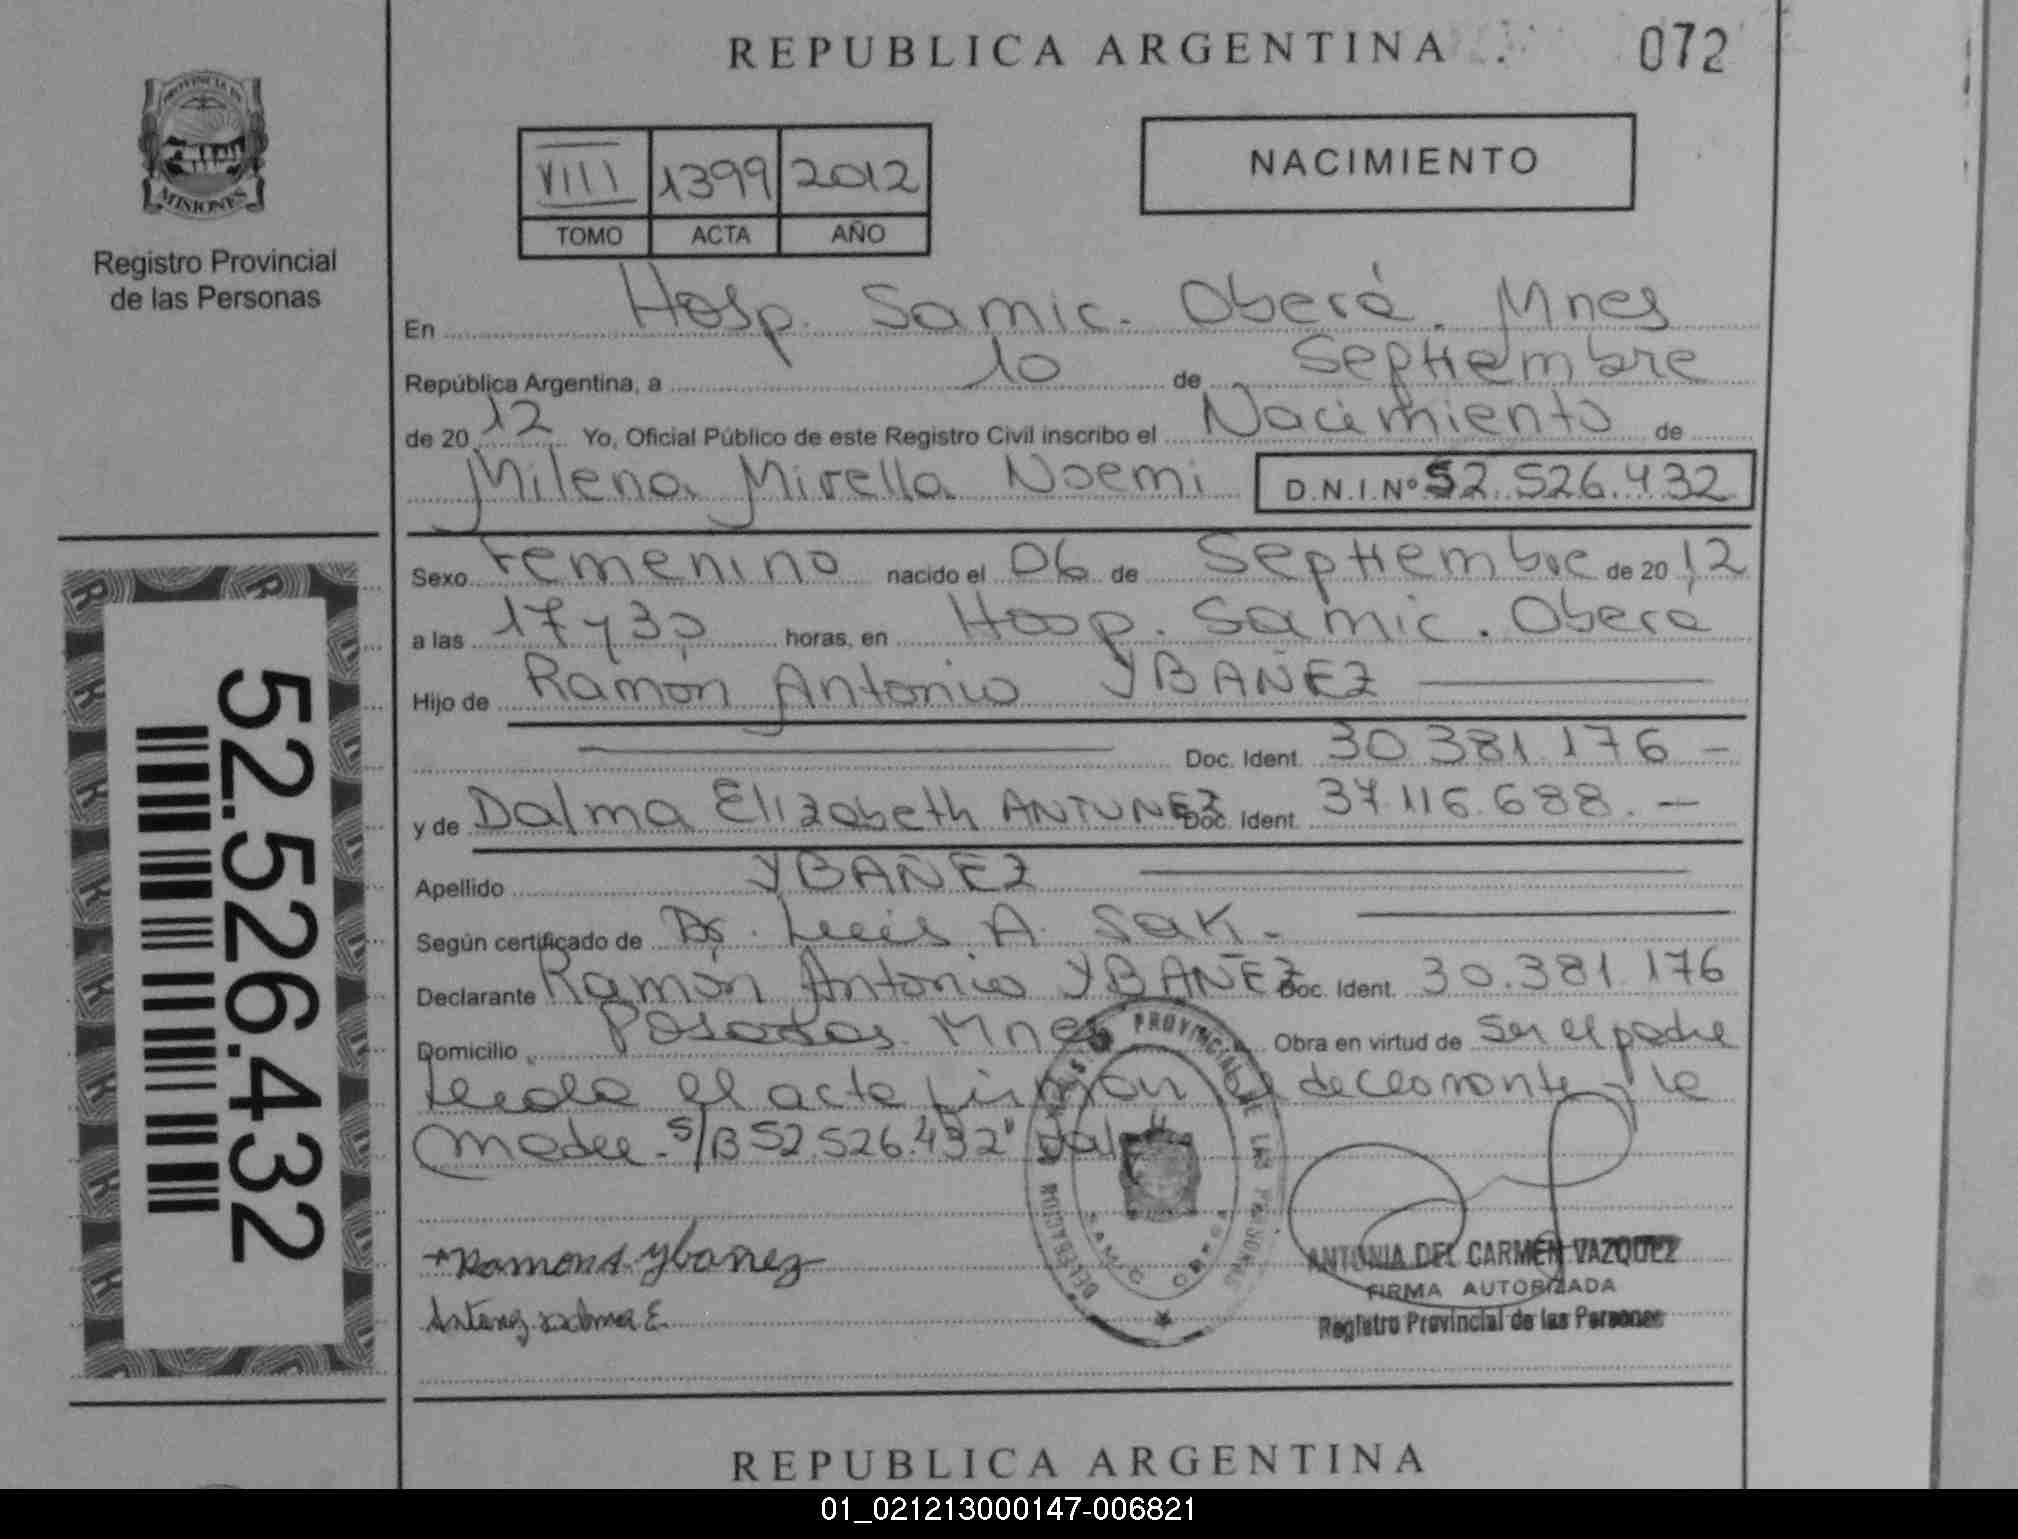 REPUBLICA ARGENTINA
072
PROVINCIA DE
MISIONES
Registro Provincial
de las Personas
VIII 1399 2012
TOMO ACTA AÑO
NACIMIENTO
En Hosp. Samic. Oberá. Mnes
República Argentina, a 10 de Septiembre
de 2012 Yo, Oficial Público de este Registro Civil inscribo el Nacimiento de
Milena Mirella Noemi D.N.I.Nº 52.526.432
Sexo Femenino nacido el 06 de Septiembre de 2012
a las 17 y 30 horas, en Hosp. Samic. Obera
Hijo de Ramon Antonio YBAÑEZ
Doc. Ident. 30.381.176
y de Dalma Elizabeth ANTUNEZ Doc. Ident. 37.116.688.
Apellido YBAÑEZ
Según certificado de Dr. Luis A. Sak.
Declarante Ramón Antonio YBAÑEZ Doc. Ident. 30.381.176
Domicilio Posadas. Mnes Obra en virtud de Ser el padre
Leida el acta firman el declarante y la
madre. S/B 52.526.432" Vale
52.526.432
PROVINCIAL DE LAS PERSONAS
DELEGACION
SAMIC OBERA
Ramon A. Ybañez
Antunez Dalma E.
ANTONIA DEL CARMEN VAZQUEZ
FIRMA AUTORIZADA
Registro Provincial de las Personas
REPUBLICA ARGENTINA
01_021213000147-006821